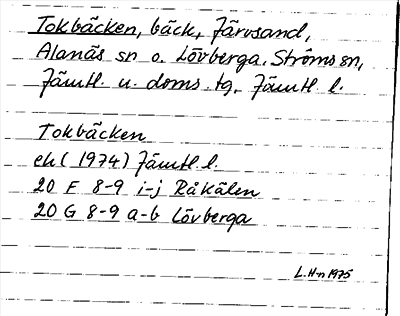 Tokbäcken, bäck, Järvsand,
Alanäs sn o. Lövberga, Ströms sn,
Jämtl. n. doms. tg, Jämtl l.
Tokbäcken
ek (1974) Jämtl l.
20 F 8-9 i-j Råkälen
20 G 8-9 a-b Lövberga
L.H-n 1975